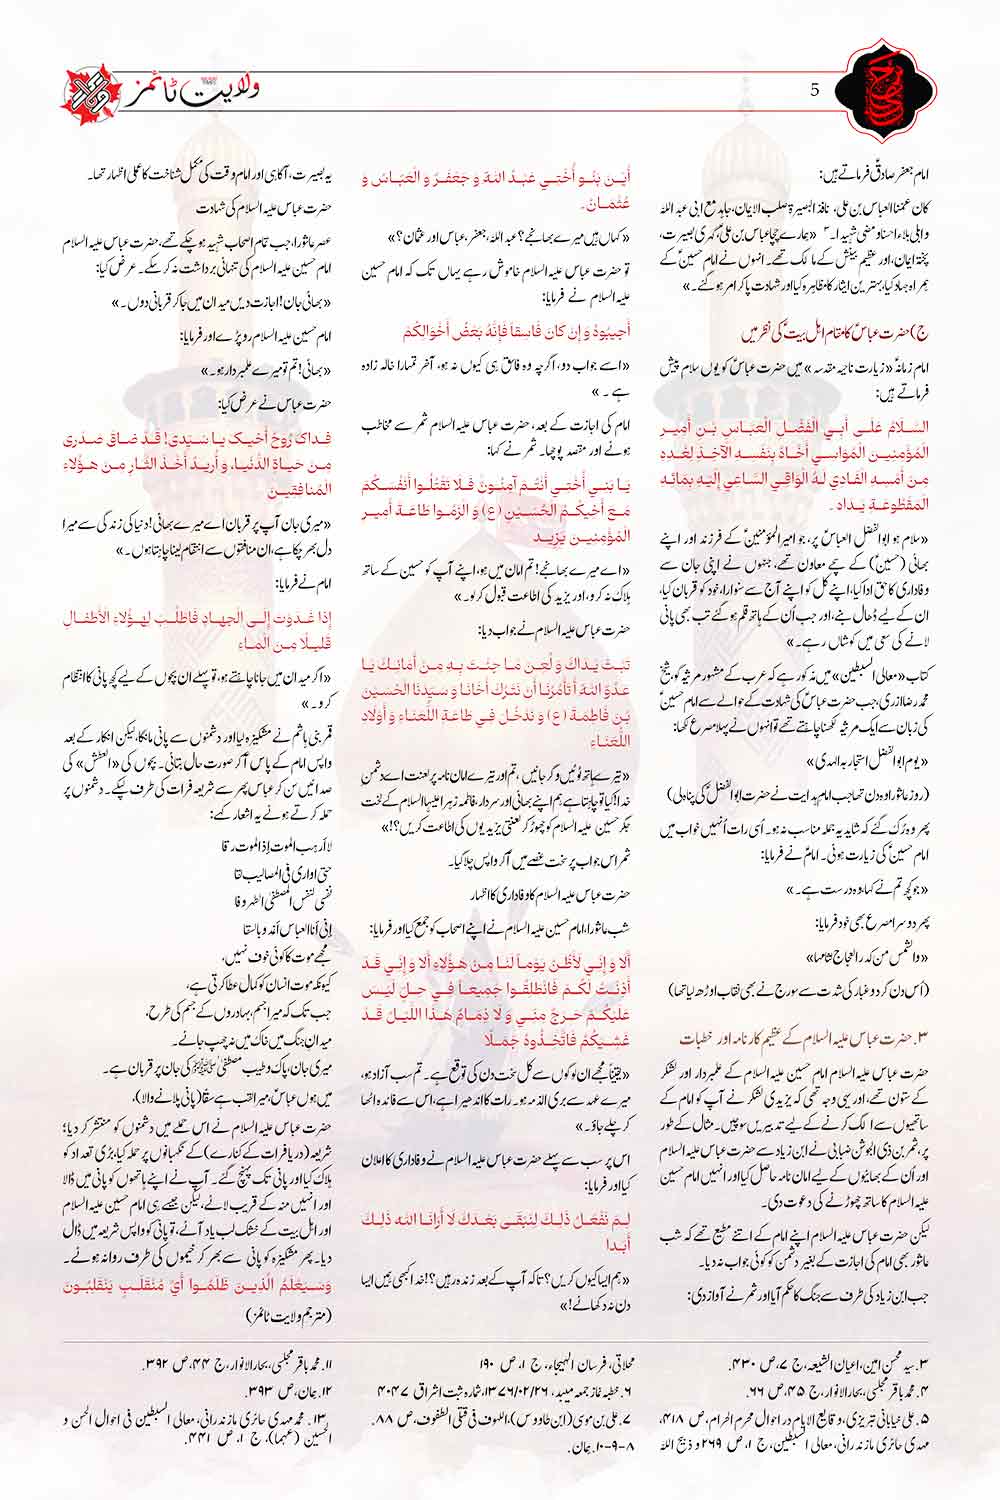 ولایت ٹائمز
5
امام جعفر صادقؑ فرماتے ہیں:
کان عمنا العباس بن علی، نافذ البصیرۃ صلب الایمان، جاہد مع ابی عبد اللہ
و ابلی بلاءا حسنا و مضی شہیدا۔ ۳ «ہمارے چچا عباس بن علی، گہری بصیرت،
پختہ ایمان، اور عظیم بینش کے مالک تھے۔ انہوں نے امام حسینؑ کے
ہمراہ جہاد کیا، بہترین ایثار کا مظاہرہ کیا اور شہادت پا کر امر ہو گئے۔»
ج) حضرت عباسؑ کا مقام اہل بیتؑ کی نظر میں
امام زمانہؑ «زیارت ناحیہ مقدسہ» میں حضرت عباسؑ کو یوں سلام پیش
فرماتے ہیں:
السَّلَامُ عَلَى أَبِي الْفَضْلِ الْعَبَّاسِ بْنِ أَمِيرِ
الْمُؤْمِنِينَ الْمُوَاسِي أَخَاهُ بِنَفْسِهِ الْآخِذِ لِغَدِهِ
مِنْ أَمْسِهِ الْفَادِي لَهُ الْوَاقِي السَّاعِي إِلَيْهِ بِمَائِهِ
الْمَقْطُوعَةِ يَدَاهُ ۔
«سلام ہو ابوالفضل العباسؑ پر، جو امیر المؤمنینؑ کے فرزند اور اپنے
بھائی (حسینؑ) کے سچے معاون تھے، جنہوں نے اپنی جان سے
وفاداری کا حق ادا کیا، اپنے کل کو اپنے آج سے سنوارا، خود کو قربان کیا،
ان کے لیے ڈھال بنے، اور جب اُن کے ہاتھ قلم ہو گئے تب بھی پانی
لانے کی سعی میں کوشاں رہے۔»
کتاب «معالی السبطین» میں مذکور ہے کہ عرب کے مشہور مرثیہ گو شیخ
محمد رضا ازری، جب حضرت عباسؑ کی شہادت کے حوالے سے امام حسینؑ
کی زبان سے ایک مرثیہ لکھنا چاہتے تھے تو انہوں نے پہلا مصرع لکھا:
«یوم ابوالفضل استجار بہ الہدی»
(روز عاشورا وہ دن تھا جب امام ہدایت نے حضرت ابوالفضلؑ کی پناہ لی)
پھر وہ رک گئے کہ شاید یہ جملہ مناسب نہ ہو۔ اُسی رات اُنہیں خواب میں
امام حسینؑ کی زیارت ہوئی۔ امامؑ نے فرمایا:
«جو کچھ تم نے کہا، وہ درست ہے۔»
پھر دوسرا مصرع بھی خود فرمایا:
«والشمس من کدر العجاج لثامہا»
(اُس دن گرد و غبار کی شدت سے سورج نے بھی نقاب اوڑھ لیا تھا)
۳۔ حضرت عباس علیہ السلام کے عظیم کارنامہ اور خطبات
حضرت عباس علیہ السلام امام حسین علیہ السلام کے علمبردار اور لشکر
کے ستون تھے، اور یہی وجہ تھی کہ یزیدی لشکر نے آپ کو امام کے
ساتھیوں سے الگ کرنے کے لیے تدبیریں سوچیں۔ مثال کے طور
پر، شمر بن ذی الجوشن ضبابی نے ابن زیاد سے حضرت عباس علیہ السلام
اور اُن کے بھائیوں کے لیے امان نامہ حاصل کیا اور انہیں امام حسین
علیہ السلام کا ساتھ چھوڑنے کی دعوت دی۔
لیکن حضرت عباس علیہ السلام اپنے امام کے اتنے مطیع تھے کہ شب
عاشور بھی امام کی اجازت کے بغیر دشمن کو کوئی جواب نہ دیا۔
جب ابن زیاد کی طرف سے جنگ کا حکم آیا اور شمر نے آواز دی:
أَيْنَ بَنُو أُخْتِي عَبْدُ اللهَ وَ جَعْفَرُ وَ الْعَبَّاسُ وَ
عُثْمَانُ۔
«کہاں ہیں میرے بھانجے؟ عبد اللہ، جعفر، عباس اور عثمان؟»
تو حضرت عباس علیہ السلام خاموش رہے یہاں تک کہ امام حسین
علیہ السلام نے فرمایا:
أَجِيبُوهُ وَ إِن كَانَ فَاسِقًا فَإِنَّهُ بَعْضُ أَخْوَالِكُمْ
«اسے جواب دو، اگرچہ وہ فاسق ہی کیوں نہ ہو، آخر تمہارا خالہ زادہ
ہے۔»
امام کی اجازت کے بعد، حضرت عباس علیہ السلام شمر سے مخاطب
ہوئے اور مقصد پوچھا۔ شمر نے کہا:
يَا بَنِي أُخْتِي أَنْتُمْ آمِنُونَ فَلَا تَقْتُلُوا أَنْفُسَكُمْ
مَعَ أَخِيكُمُ الْحُسَيْنِ (ع) وَ الْزَمُوا طَاعَةَ أَمِيرِ
الْمُؤْمِنِينَ يَزِيدَ
«اے میرے بھانجے! تم امان میں ہو، اپنے آپ کو حسین کے ساتھ
ہلاک نہ کرو، اور یزید کی اطاعت قبول کر لو۔»
حضرت عباس علیہ السلام نے جواب دیا:
تَبَّتْ يَدَاكَ وَ لُعِنَ مَا جِئْتَ بِهِ مِنْ أَمَانِكَ يَا
عَدُوَّ اللهَ أَ تَأْمُرُنَا أَن نَتْرُكَ أَخَانَا وَ سَيِّدَنَا الْحُسَيْنَ
بْنَ فَاطِمَةَ (ع) وَ نَدْخُلَ فِي طَاعَةِ اللُّعَنَاءِ وَ أَوْلَادِ
اللُّعَنَاءِ
«تیرے ہاتھ ٹوٹیں و گر جائیں، تم اور تیرے امان نامہ پر لعنت اے دشمنِ
خدا! کیا تو چاہتا ہے ہم اپنے بھائی اور سردار، فاطمہ زہرا علیہا السلام کے لخت
جگر حسین علیہ السلام کو چھوڑ کر لعنتی یزیدیوں کی اطاعت کریں؟!»
شمر اس جواب پر سخت غصے میں آکر واپس چلا گیا۔
حضرت عباس علیہ السلام کا وفاداری کا اظہار
شب عاشورا، امام حسین علیہ السلام نے اپنے اصحاب کو جمع کیا اور فرمایا:
أَلَا وَ إِنِّي لَأَظُنُّ يَوْماً لَنَا مِنْ هَؤُلَاءِ أَلَا وَ إِنِّي قَدْ
أَذِنْتُ لَكُمْ فَانْطَلِقُوا جَمِيعاً فِي حِلٍّ لَيْسَ
عَلَيْكُمْ حَرَجٌ مِنِّي وَ لَا ذِمَامٌ هَذَا اللَّيْلُ قَدْ
غَشِيَكُمْ فَاتَّخِذُوهُ جَمَلًا
«یقیناً مجھے ان لوگوں سے کل سخت دن کی توقع ہے۔ تم سب آزاد ہو،
میرے عہد سے بری الذمہ ہو۔ رات کا اندھیرا ہے، اس سے فائدہ اٹھا
کر چلے جاؤ۔»
اس پر سب سے پہلے حضرت عباس علیہ السلام نے وفاداری کا اعلان
کیا اور فرمایا:
لِمَ نَفْعَلُ ذَلِكَ لِنَبْقَى بَعْدَكَ لَا أَرَانَا اللهُ ذَلِكَ
أَبَدا
«ہم ایسا کیوں کریں؟ تاکہ آپ کے بعد زندہ رہیں؟! خدا کبھی ہمیں ایسا
دن نہ دکھائے!»
یہ بصیرت، آگاہی اور امام وقت کی مکمل شناخت کا عملی اظہار تھا۔
حضرت عباس علیہ السلام کی شہادت
عصر عاشورا، جب تمام اصحاب شہید ہو چکے تھے، حضرت عباس علیہ السلام
امام حسین علیہ السلام کی تنہائی برداشت نہ کر سکے۔ عرض کیا:
«بھائی جان! اجازت دیں میدان میں جا کر قربانی دوں۔»
امام حسین علیہ السلام رو پڑے اور فرمایا:
«بھائی! تم تو میرے علمبردار ہو۔»
حضرت عباس نے عرض کیا:
فداك روحُ أخيك يا سيدي! قد ضاق صدري
من حياةِ الدُّنيا، و أُريد أخذَ الثّارِ من هؤلاء
المنافقين
«میری جان آپ پر قربان اے میرے بھائی! دنیا کی زندگی سے میرا
دل بھر چکا ہے، ان منافقوں سے انتقام لینا چاہتا ہوں۔»
امام نے فرمایا:
إذا غدوتَ إلى الجهادِ فاطلُب لهؤلاءِ الأطفالِ
قليلًا من الماءِ
«اگر میدان میں جانا چاہتے ہو، تو پہلے ان بچوں کے لیے کچھ پانی کا انتظام
کرو۔»
قمر بنی ہاشم نے مشکیزہ لیا اور دشمنوں سے پانی مانگا، لیکن انکار کے بعد
واپس امام کے پاس آکر صورت حال بتائی۔ بچوں کی «العطش» کی
صدائیں سن کر عباس پھر سے شریعہ فرات کی طرف لپکے۔ دشمنوں پر
حملہ کرتے ہوئے یہ اشعار کہے:
لا أرہب الموت إذا الموت رقا
حتی اواری فی المصالیب لقا
نفسی لنفس المصطفی الطہر وقا
إنی أنا العباس أغدو بالسقا
مجھے موت کا کوئی خوف نہیں،
کیونکہ موت انسان کو کمال عطا کرتی ہے،
جب تک کہ میرا جسم، بہادروں کے جسم کی طرح،
میدان جنگ میں خاک میں نہ چھپ جائے۔
میری جان، پاک و طیب مصطفیٰ ﷺ کی جان پر قربان ہے۔
میں ہوں عباس، میرا لقب ہے سقا (پانی پلانے والا)،
حضرت عباس علیہ السلام نے اس حملے میں دشمنوں کو منتشر کر دیا؛
شریعہ (دریا فرات کے کنارے) کے نگہبانوں پر حملہ کیا، بڑی تعداد کو
ہلاک کیا اور پانی تک پہنچ گئے۔ آپ نے اپنے ہاتھوں کو پانی میں ڈالا
اور انہیں منہ کے قریب لائے، لیکن جیسے ہی امام حسین علیہ السلام
اور اہل بیت کے خشک لب یاد آئے، تو پانی کو واپس شریعہ میں ڈال
دیا۔ پھر مشکیزہ کو پانی سے بھر کر خیموں کی طرف روانہ ہوئے۔
وَسَيَعْلَمُ الَّذِينَ ظَلَمُوا أَيَّ مُنْقَلَبٍ يَنْقَلِبُونَ
(مترجم ولایت ٹائمز)
۳. سید محسن امین، اعیان الشیعہ، ج ۷، ص ۴۳۰.
۴. محمد باقر مجلسی، بحار الانوار، ج ۴۵، ص ۶۶.
۵. علی خیابانی تبریزی، وقایع الایام در احوال محرم الحرام، ص ۴۱۸،
مہدی حائری مازندرانی، معالی السبطین، ج ۱، ص ۲۶۹ و ذبیح اللہ
محلاتی، فرسان الہیجاء، ج ۱، ص ۱۹۰
۶. خطبہ نماز جمعہ میبد، ۱۳۷۶/۰۲/۲۶، شمارہ ثبت اشراق ۴۰۴۷
۷. علی بن موسی (ابن طاووس)، اللہوف فی قتلی الطفوف، ص ۸۸.
۸-۹-۱۰. ہمان.
۱۱. محمد باقر مجلسی، بحار الانوار، ج ۴۴، ص ۳۹۲.
۱۲. ہمان، ص ۳۹۳.
۱۳. محمد مہدی حائری مازندرانی، معالی السبطین فی احوال الحسن و
الحسین (عہما)، ج ۱، ص ۴۴۱.